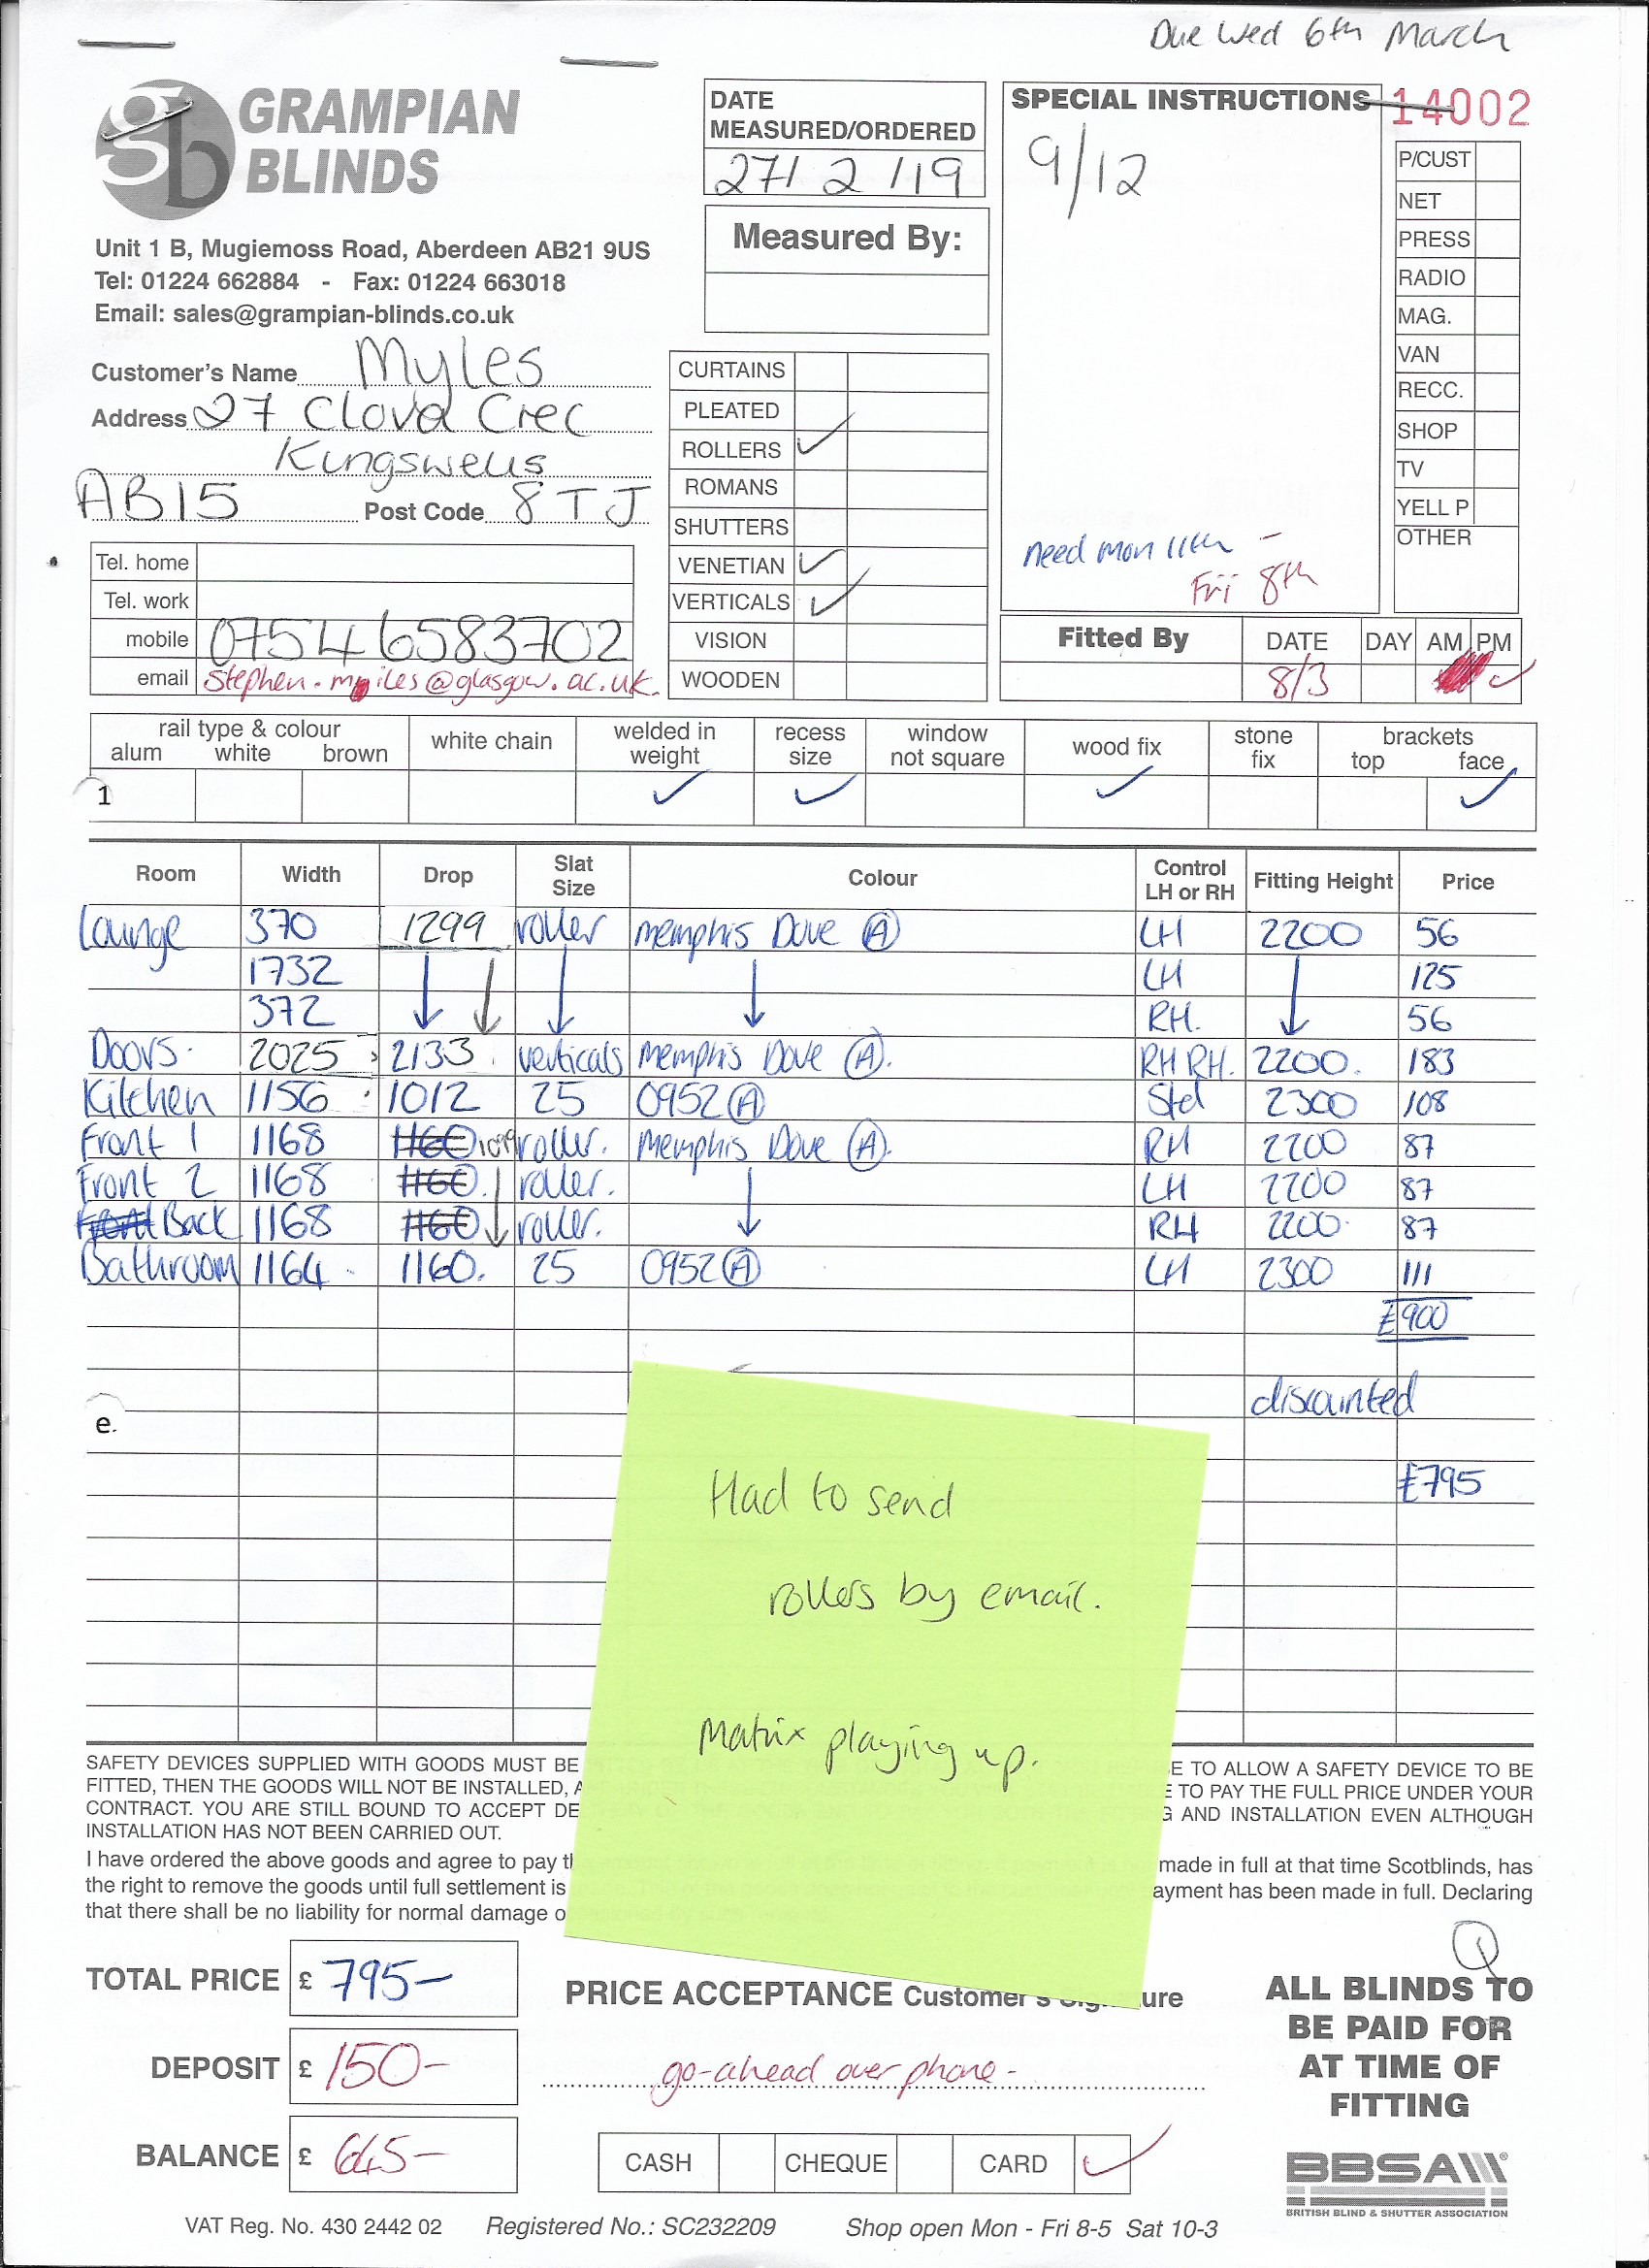 Due Wed 6th March
gb GRAMPIAN
BLINDS
Unit 1 B, Mugiemoss Road, Aberdeen AB21 9US
Tel: 01224 662884 - Fax: 01224 663018
Email: sales@grampian-blinds.co.uk
DATE
MEASURED/ORDERED
27/2/19
Measured By:
SPECIAL INSTRUCTIONS
9/12
need mon 11th -
Fri 8th
14002
P/CUST
NET
PRESS
RADIO
MAG.
VAN
RECC.
SHOP
TV
YELL P
OTHER
Customer's Name Myles
Address 27 Clova Crec
Kingswells
AB15 Post Code 8TJ
Tel. home
Tel. work
mobile 07546583702
email stephen.myles@glasgow.ac.uk.
CURTAINS
PLEATED
ROLLERS ✓
ROMANS
SHUTTERS
VENETIAN ✓
VERTICALS ✓
VISION
WOODEN
Fitted By DATE DAY AM PM
8/3 ✓
rail type & colour
alum white brown
white chain
welded in weight ✓
recess size ✓
window not square
wood fix ✓
stone fix
brackets
top face ✓
1
Room Width Drop Slat Size Colour Control LH or RH Fitting Height Price
Lounge 370 1299 roller Memphis Dove (A) LH 2200 56
1732 LH 125
372 RH. 56
Doors 2025 2133 verticals Memphis Dove (A). RH RH. 2200. 183
Kitchen 1156 1012 25 0952 (A) Std 2300 108
Front 1 1168 1160 1099 roller. Memphis Dove (A). RH 2200 87
Front 2 1168 1160. roller. LH 2200 87
Front Back 1168 1160 roller. RH 2200 87
Bathroom 1164 1160. 25 0952 (A) LH 2300 111
£900
discounted
e.
£795
Had to send
rollers by email.
Matrix playing up.
SAFETY DEVICES SUPPLIED WITH GOODS MUST BE E TO ALLOW A SAFETY DEVICE TO BE
FITTED, THEN THE GOODS WILL NOT BE INSTALLED, A E TO PAY THE FULL PRICE UNDER YOUR
CONTRACT. YOU ARE STILL BOUND TO ACCEPT DE G AND INSTALLATION EVEN ALTHOUGH
INSTALLATION HAS NOT BEEN CARRIED OUT.
I have ordered the above goods and agree to pay t made in full at that time Scotblinds, has
the right to remove the goods until full settlement is ayment has been made in full. Declaring
that there shall be no liability for normal damage o
TOTAL PRICE £ 795-
DEPOSIT £ 150-
BALANCE £ 645-
PRICE ACCEPTANCE Customer's Signature
go-ahead over phone-
CASH CHEQUE CARD ✓
Q
ALL BLINDS TO
BE PAID FOR
AT TIME OF
FITTING
BBSA
BRITISH BLIND & SHUTTER ASSOCIATION
VAT Reg. No. 430 2442 02 Registered No.: SC232209 Shop open Mon - Fri 8-5 Sat 10-3